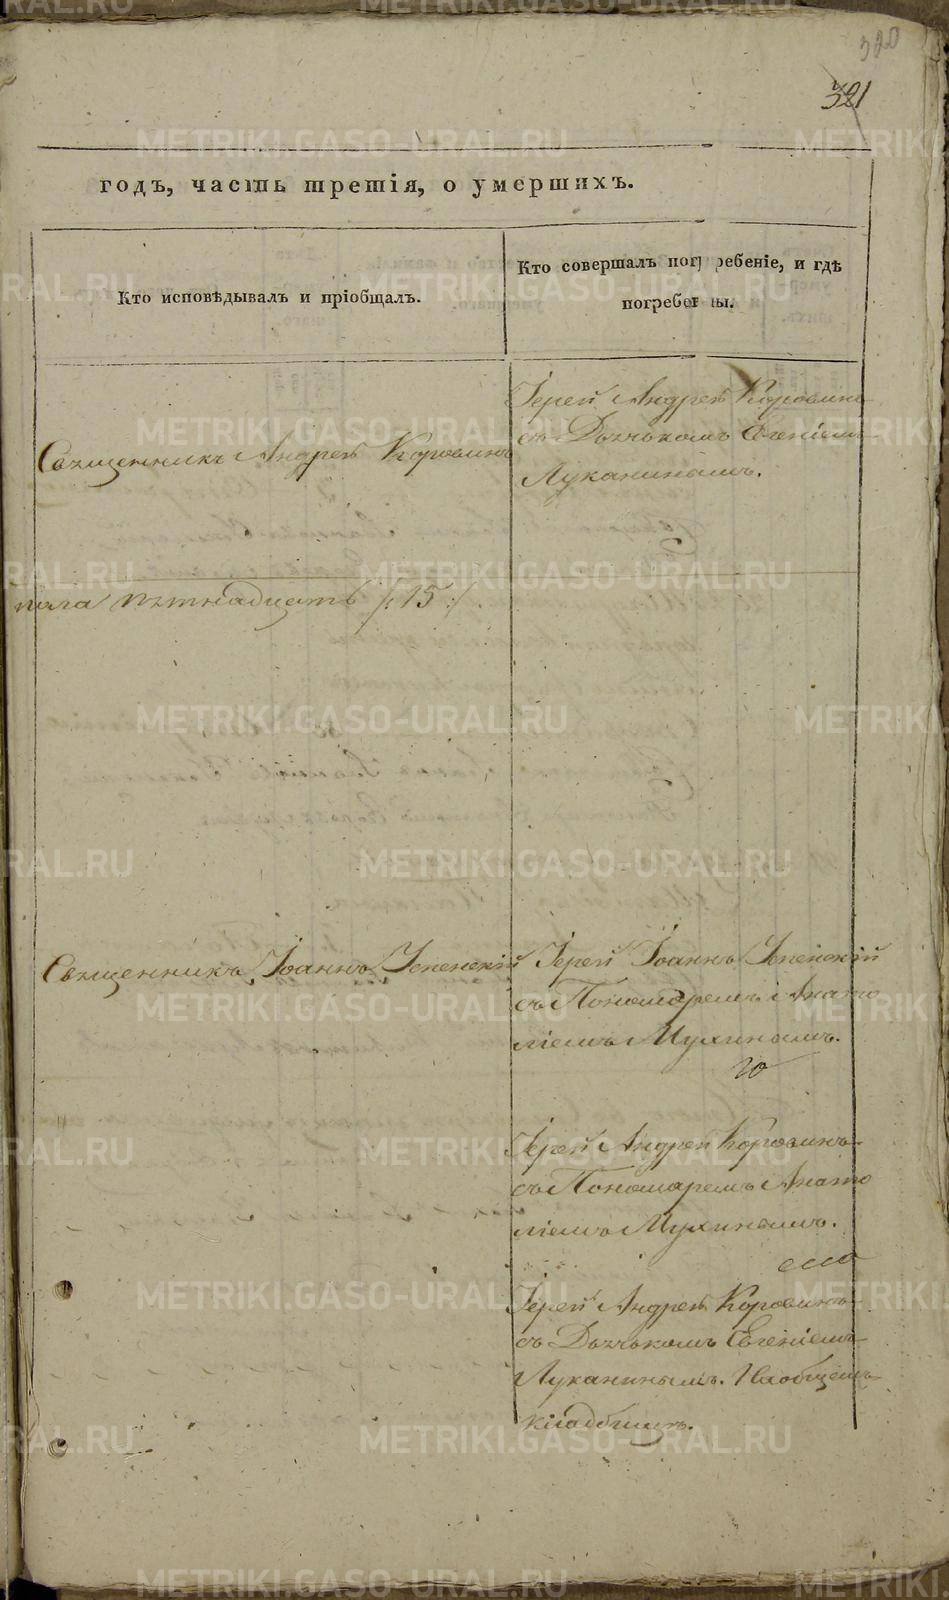 320
321
годъ, часть третія, о умершихъ.
Кто исповѣдывалъ и пріобщалъ.
Кто совершалъ погребеніе, и гдѣ
погребены.
Іерей Андрей Коровинъ
съ Дьячькомъ Евгеніемъ
Лукaнинымъ.
Священникъ Андрей Коровинъ
пола пятнадцать /:15:/.
Священникъ Іоаннъ Успенскій
Іерей Іоаннъ Успенскій
съ Пономаремъ Анато
ліемъ Мухинымъ.
Іерей Андрей Коровинъ
съ Пономаремъ Анато
ліемъ Мухинымъ.
Іерей Андрей Коровинъ
съ Дьячькомъ Евгеніемъ
Луканинымъ. На общемъ
кладбищѣ.
METRIKI.GASO-URAL.RU